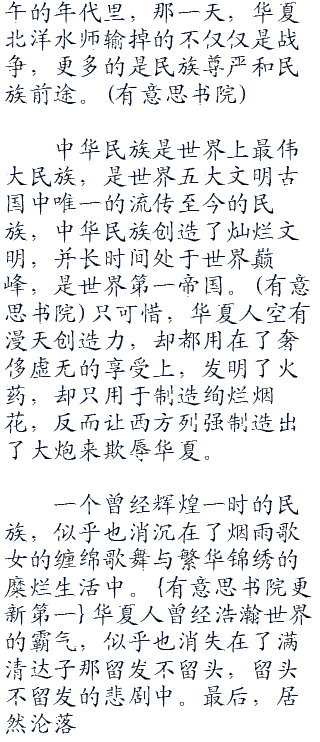 午的年代里，那一天，华夏
北洋水师输掉的不仅仅是战
争，更多的是民族尊严和民
族前途。(有意思书院)
中华民族是世界上最伟
大民族，是世界五大文明古
国中唯一的流传至今的民
族，中华民族创造了灿烂文
明，并长时间处于世界巅
峰，是世界第一帝国。(有意
思书院)只可惜，华夏人空有
漫天创造力，却都用在了奢
侈虚无的享受上，发明了火
药，却只用于制造绚烂烟
花，反而让西方列强制造出
了大炮来欺辱华夏。
一个曾经辉煌一时的民
族，似乎也消沉在了烟雨歌
女的缠绵歌舞与繁华锦绣的
糜烂生活中。{有意思书院更
新第一}华夏人曾经浩瀚世界
的霸气，似乎也消失在了满
清达子那留发不留头，留头
不留发的悲剧中。最后，居
然沦落